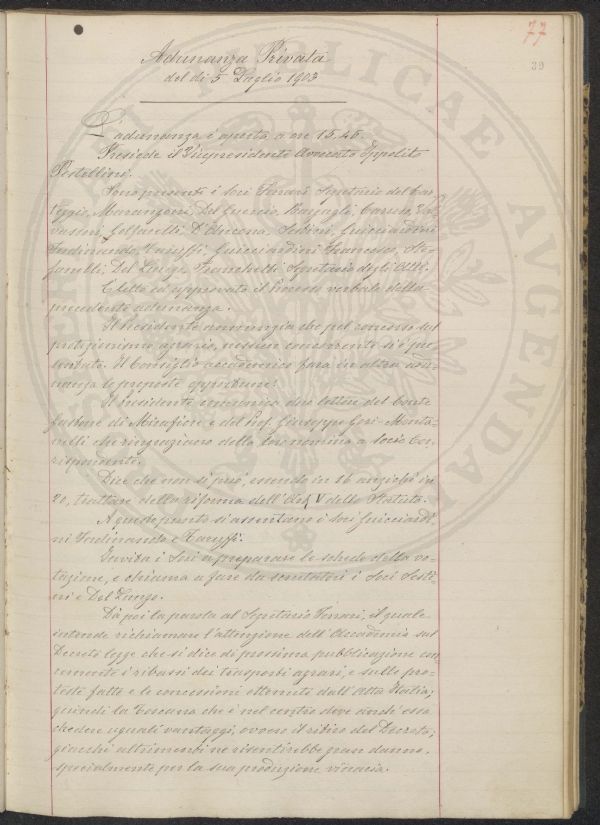 77
39
Adunanza Privata
del dì 5 Luglio 1903
L'adunanza è aperta a ore 15.45.
Presiede il Vicepresidente Avvocato Eppolito
Pestellini.
Sono presenti i Soci Ferrari Segretario del Car-
teggio, Marangoni, Del Guercio, Bargagli, Caruso, Va-
vasseri, D'Ancona, Sestini, Guicciardini
Ferdinando, Taruffi, Guicciardini Francesco, Ste-
fanelli, Del Lungo, Franchetti Segretario degli Atti.
È letto ed approvato il Processo verbale della
precedente adunanza.
Il Presidente annunzia che pel concorso sul
protezionismo agrario, nessun concorrente si è pre-
sentato. Il Consiglio accademico farà in altra adu-
nanza le proposte opportune.
Il Presidente comunica due lettere del Conte
di Mirafiore e del Prof. Giuseppe Gori-Monta-
nelli che ringraziano della loro nomina a Socio Cor-
rispondente.
Dice che non si può, essendo in 16 anzichè in
20, trattare della riforma dell'Art V dello Statuto.
A questo punto si assentano i Soci Guicciardi-
ni Ferdinando e Taruffi.
Invita i Soci a preparare le schede della vo-
tazione, e chiama a fare da scrutatori i Soci Sesti-
ni e Del Lungo.
Dà poi la parola al Segretario Ferrari, il quale
intende richiamare l'attenzione dell'Accademia sul
Decreto legge che si dice di prossima pubblicazione con-
cernente i ribassi dei trasporti agrari, e sulle pro-
teste fatte e le concessioni ottenute dall'Alta Italia;
quindi la Toscana che è nel centro deve anch'essa
chiedere uguali vantaggi, ovvero il ritiro del Decreto;
giacchè altrimenti ne risentirebbe gran danno,
specialmente per la sua produzione vinaria.